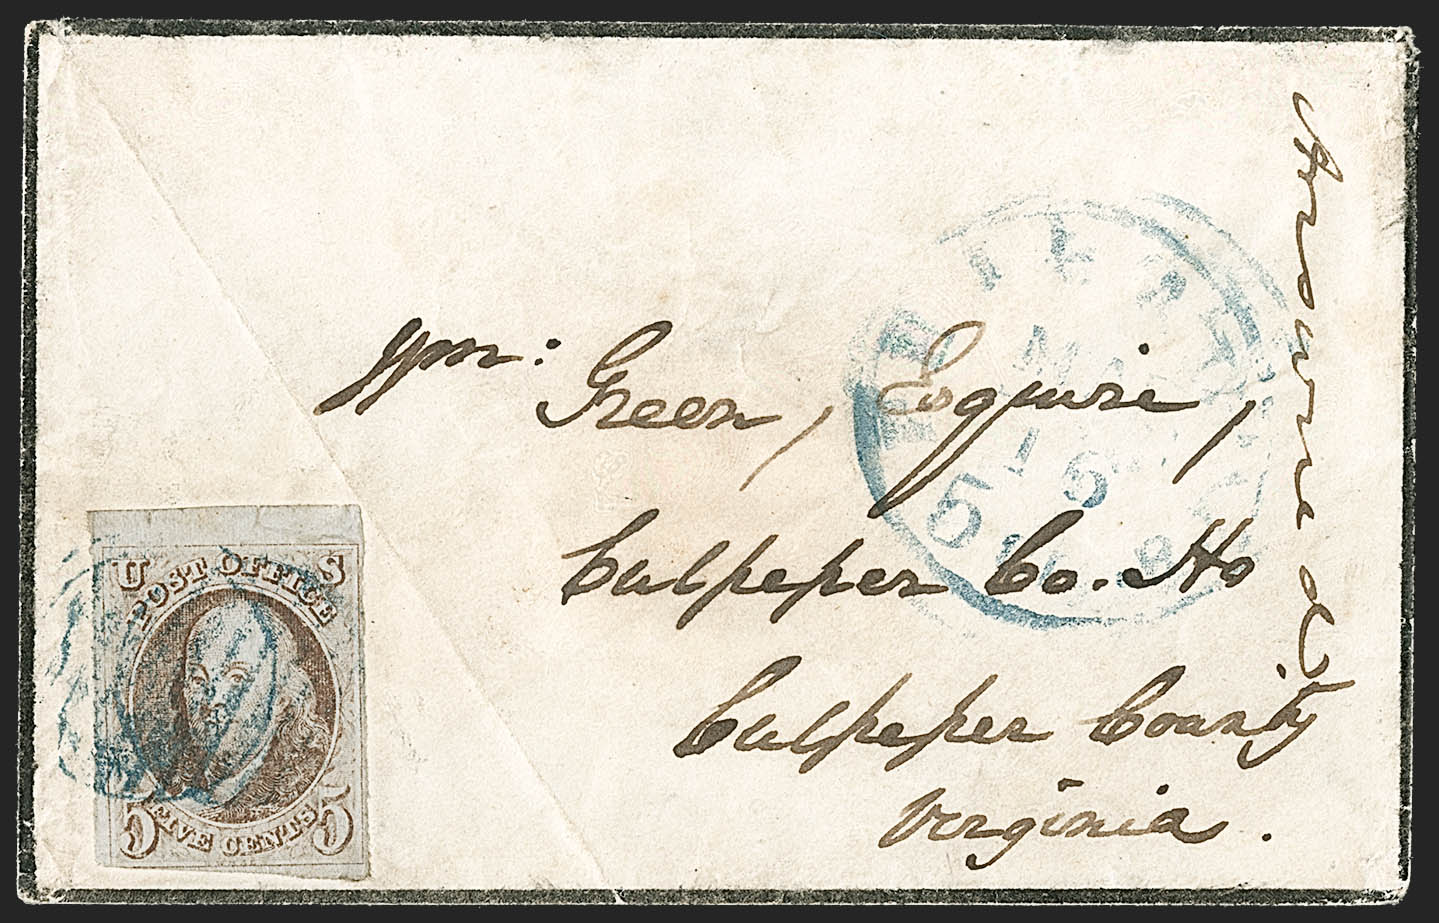 Wm: Green, Esquire,
Culpeper Co. Ho
Culpeper County
Virginia.
U S
POST OFFICE
5 FIVE CENTS 5
5